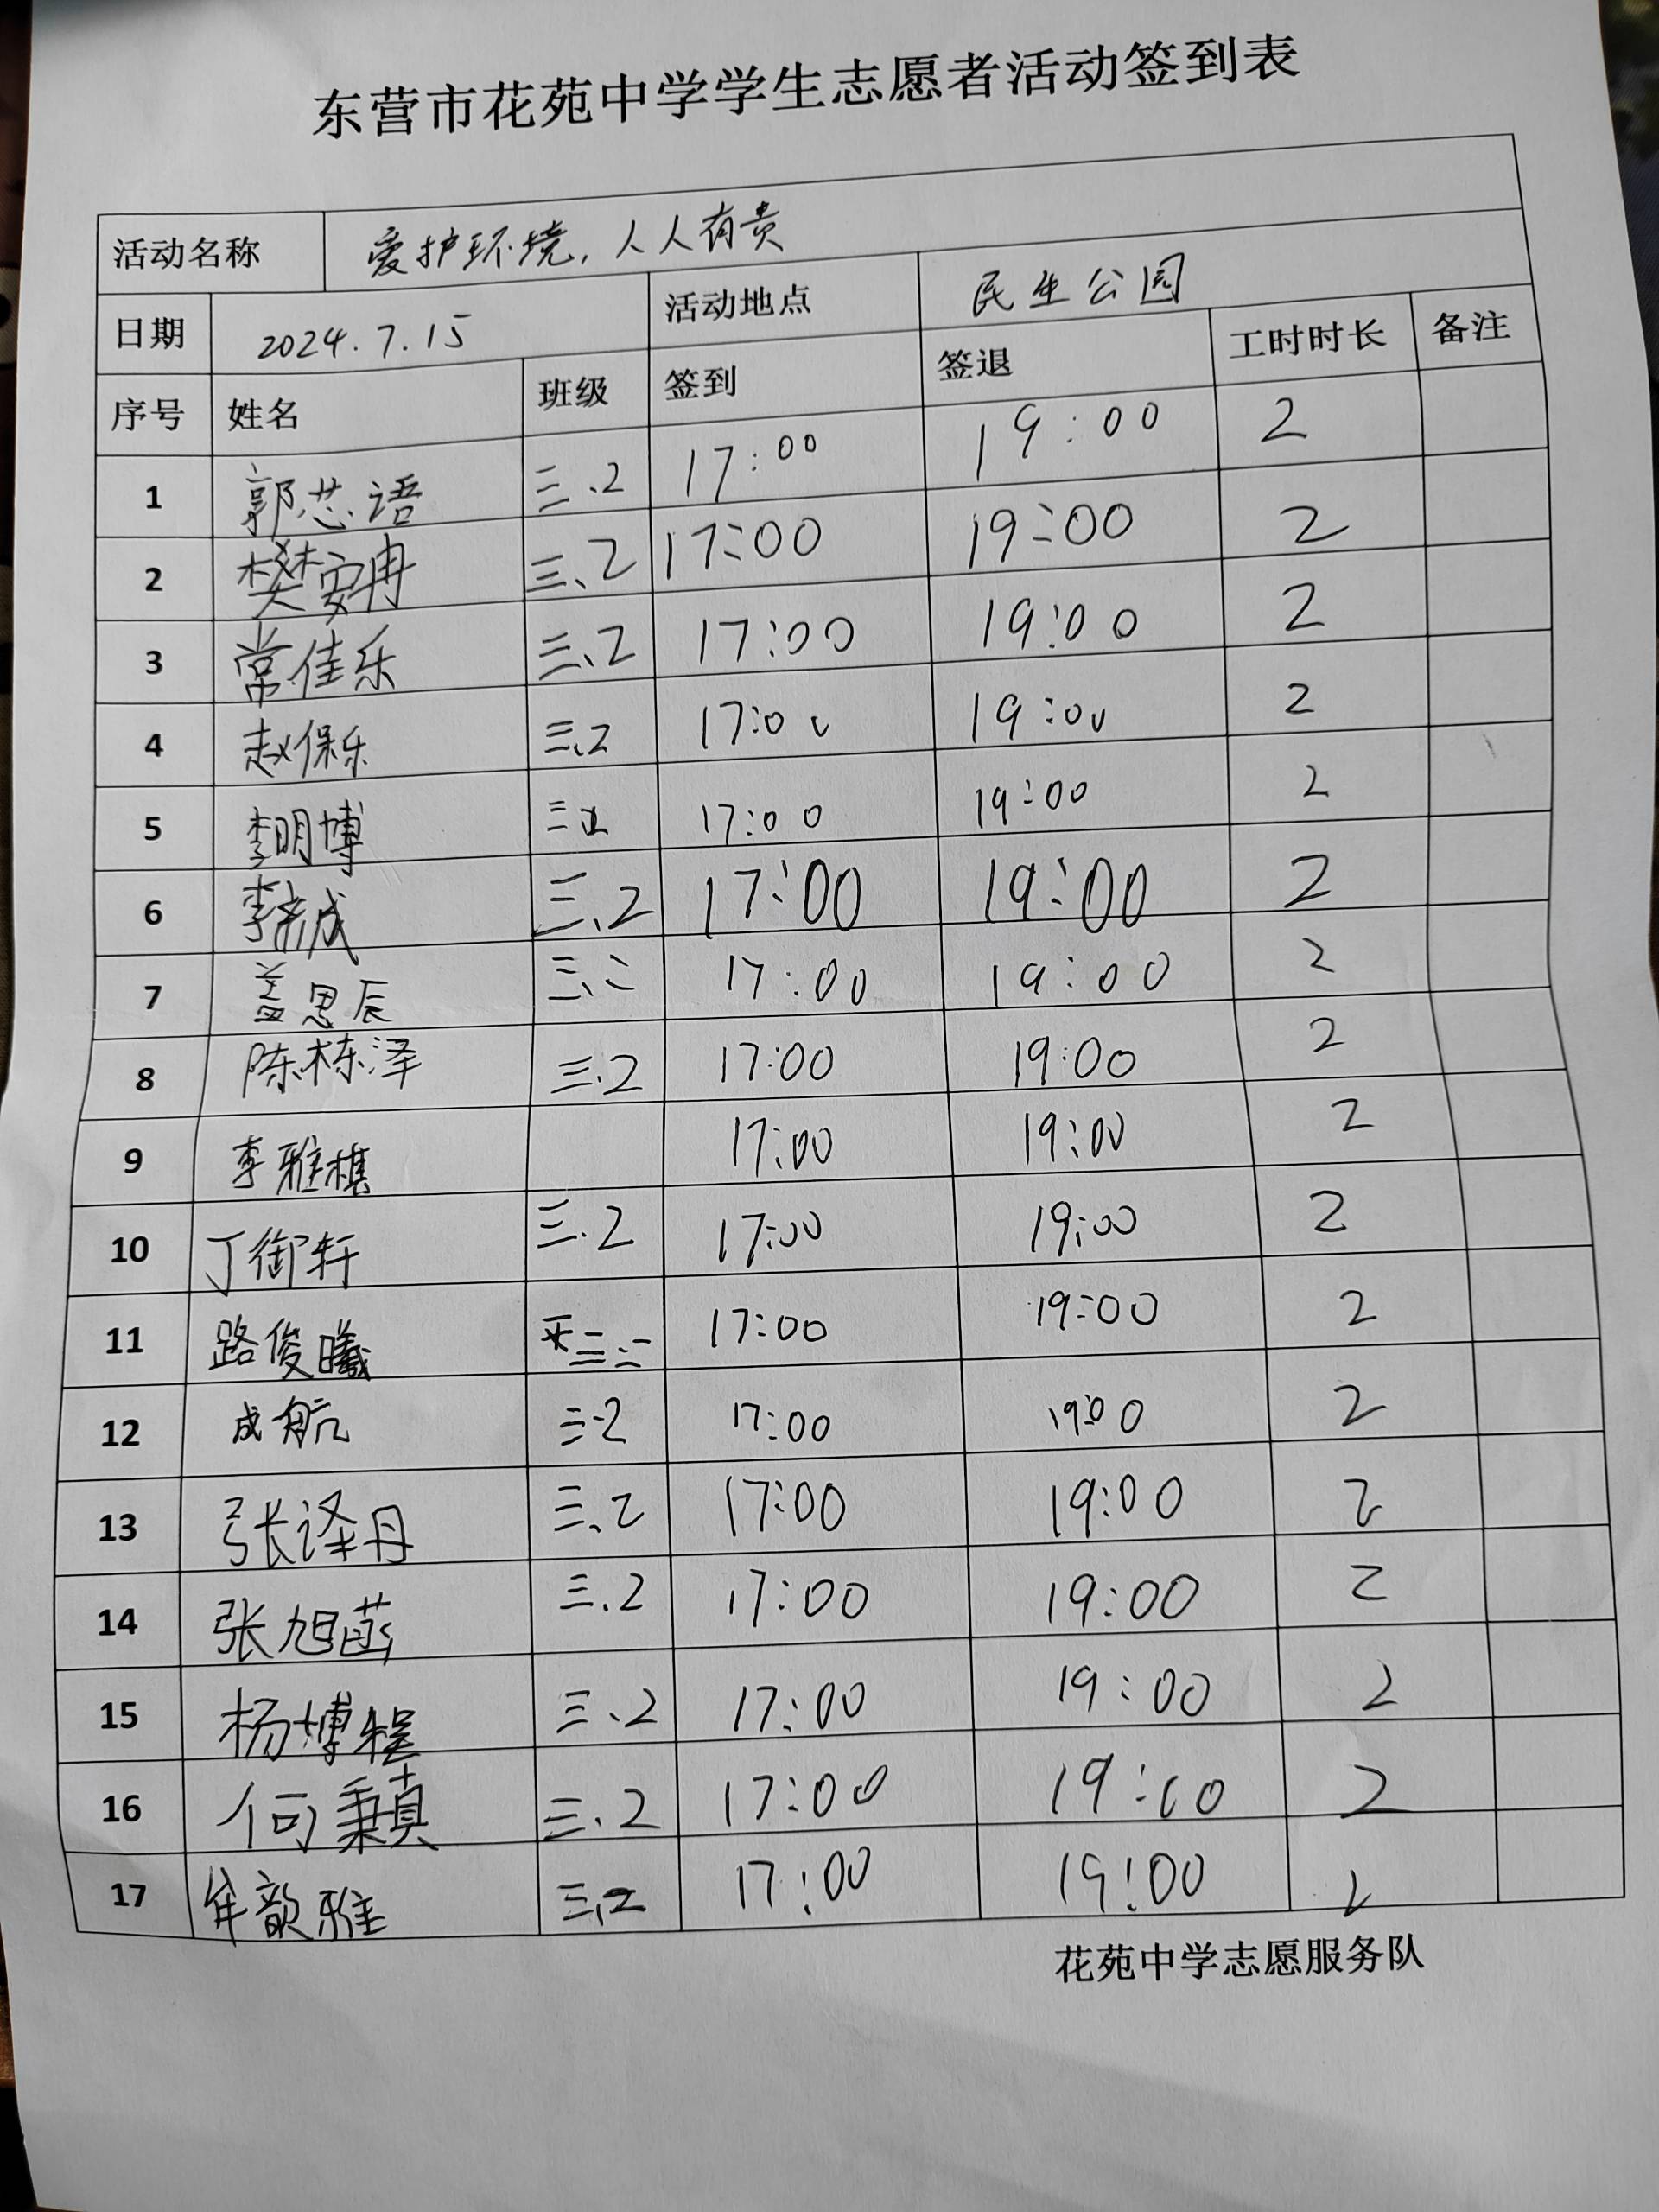 东营市花苑中学学生志愿者活动签到表
活动名称 爱护环境,人人有责
日期 2024.7.15 活动地点 民生公园
序号 姓名 班级 签到 签退 工时时长 备注
1 郭芯语 三.2 17:00 19:00 2
2 樊安冉 三、2 17:00 19:00 2
3 常佳乐 三、2 17:00 19:00 2
4 赵保乐 三、2 17:00 19:00 2
5 李明博 三 17:00 19:00 2
6 三、2 17:00 19:00 2
7 盖思辰 三、二 17:00 19:00 2
8 陈栋泽 三.2 17:00 19:00 2
9 李雅棋 17:00 19:00 2
10 丁御轩 三.2 17:00 19:00 2
11 路俊曦 三.二 17:00 19:00 2
12 成航 三·2 17:00 19:00 2
13 张译丹 三、2 17:00 19:00 2
14 张旭菡 三.2 17:00 19:00 2
15 杨博程 三、2 17:00 19:00 2
16 何秉真 三、2 17:00 19:00 2
17 牟歆雅 三、2 17:00 19:00 2
花苑中学志愿服务队